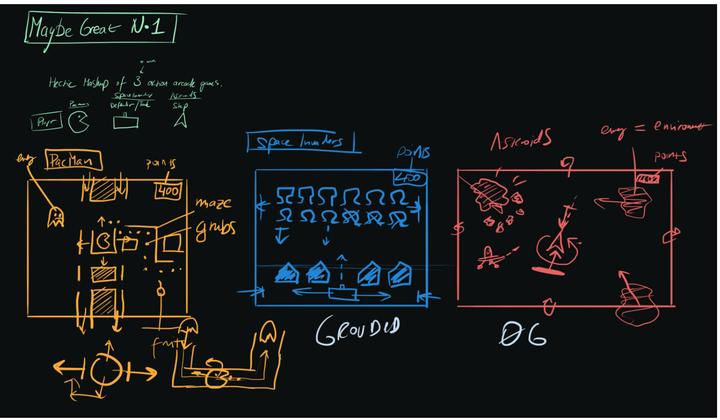 Maybe Great N.1
Hectic Mashup of 3 action arcade games.
Pacman
Space Invader
Defender/Tank
Asteroids
Ship
Player
enemy
PacMan
points
400
maze
grubs
Space Invaders
points
400
GROUDED
Asteroids
enemy = environment
points
400
0G